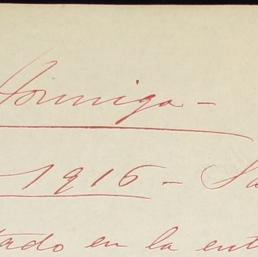 Hormiga -
1916 - Sa
tado en la ent